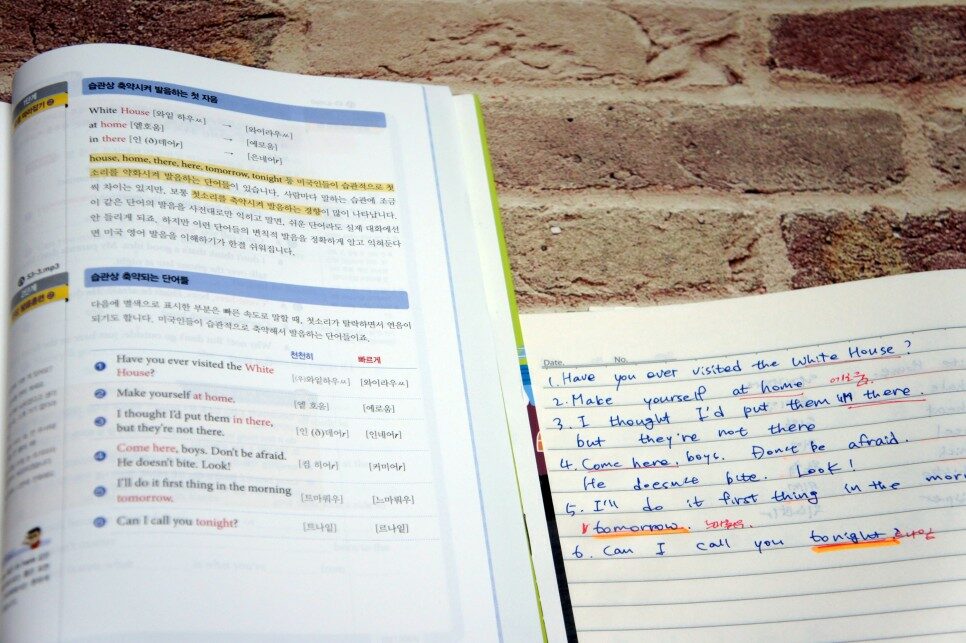 습관상 축약시켜 발음하는 첫 자음
White House [와일 하우ㅆ] → [와이라우ㅆ]
at home [엩 호움] → [에로움]
in there [인 (ð)데어r] → [은네어r]
house, home, there, here, tomorrow, tonight 등 미국인들이 습관적으로 첫
소리를 약화시켜 발음하는 단어들이 있습니다. 사람마다 말하는 습관에 조금
씩 차이는 있지만, 보통 첫소리를 축약시켜 발음하는 경향이 많이 나타납니다.
이 같은 단어의 발음을 사전대로만 익히고 말면, 쉬운 단어라도 실제 대화에선
안 들리게 되죠. 하지만 이런 단어들의 변칙적 발음을 정확하게 알고 익혀둔다
면 미국 영어 발음을 이해하기가 한결 쉬워집니다.
53-3.mp3
습관상 축약되는 단어들
다음에 별색으로 표시한 부분은 빠른 속도로 말할 때, 첫소리가 탈락하면서 연음이
되기도 합니다. 미국인들이 습관적으로 축약해서 발음하는 단어들이죠.
천천히 빠르게
1 Have you ever visited the White
House? [(우)와일하우ㅆ] [와이라우ㅆ]
2 Make yourself at home. [엩 호움] [에로움]
3 I thought I'd put them in there,
but they're not there. [인 (ð)데어r] [인네어r]
4 Come here, boys. Don't be afraid.
He doesn't bite. Look! [컴 히어r] [커미어r]
5 I'll do it first thing in the morning
tomorrow. [트마뤄우] [느마뤄우]
6 Can I call you tonight? [트나잍] [르나잍]
Date. No.
1. Have you ever visited the White House?
2. Make yourself at home. 에로움
3. I thought I'd put them in there.
but they're not there
4. Come here, boys. Don't be afraid.
He doesn't bite. Look!
5. I'll do it first thing in the mor
tomorrow.
6. Can I call you tonight 르나잍